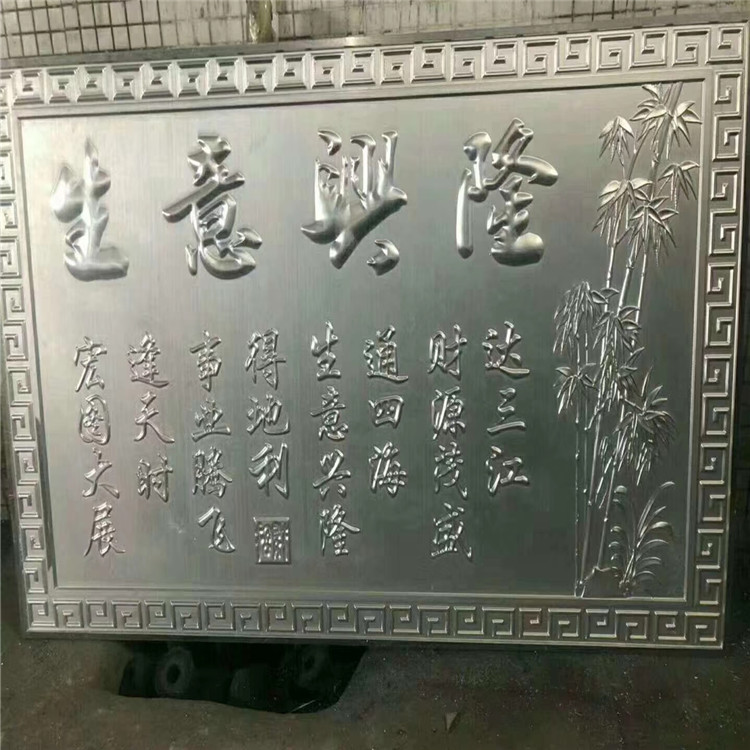 生意興隆
宏图大展
逢天时
事业腾飞
得地利
生意兴隆
通四海
财源茂盛
达三江